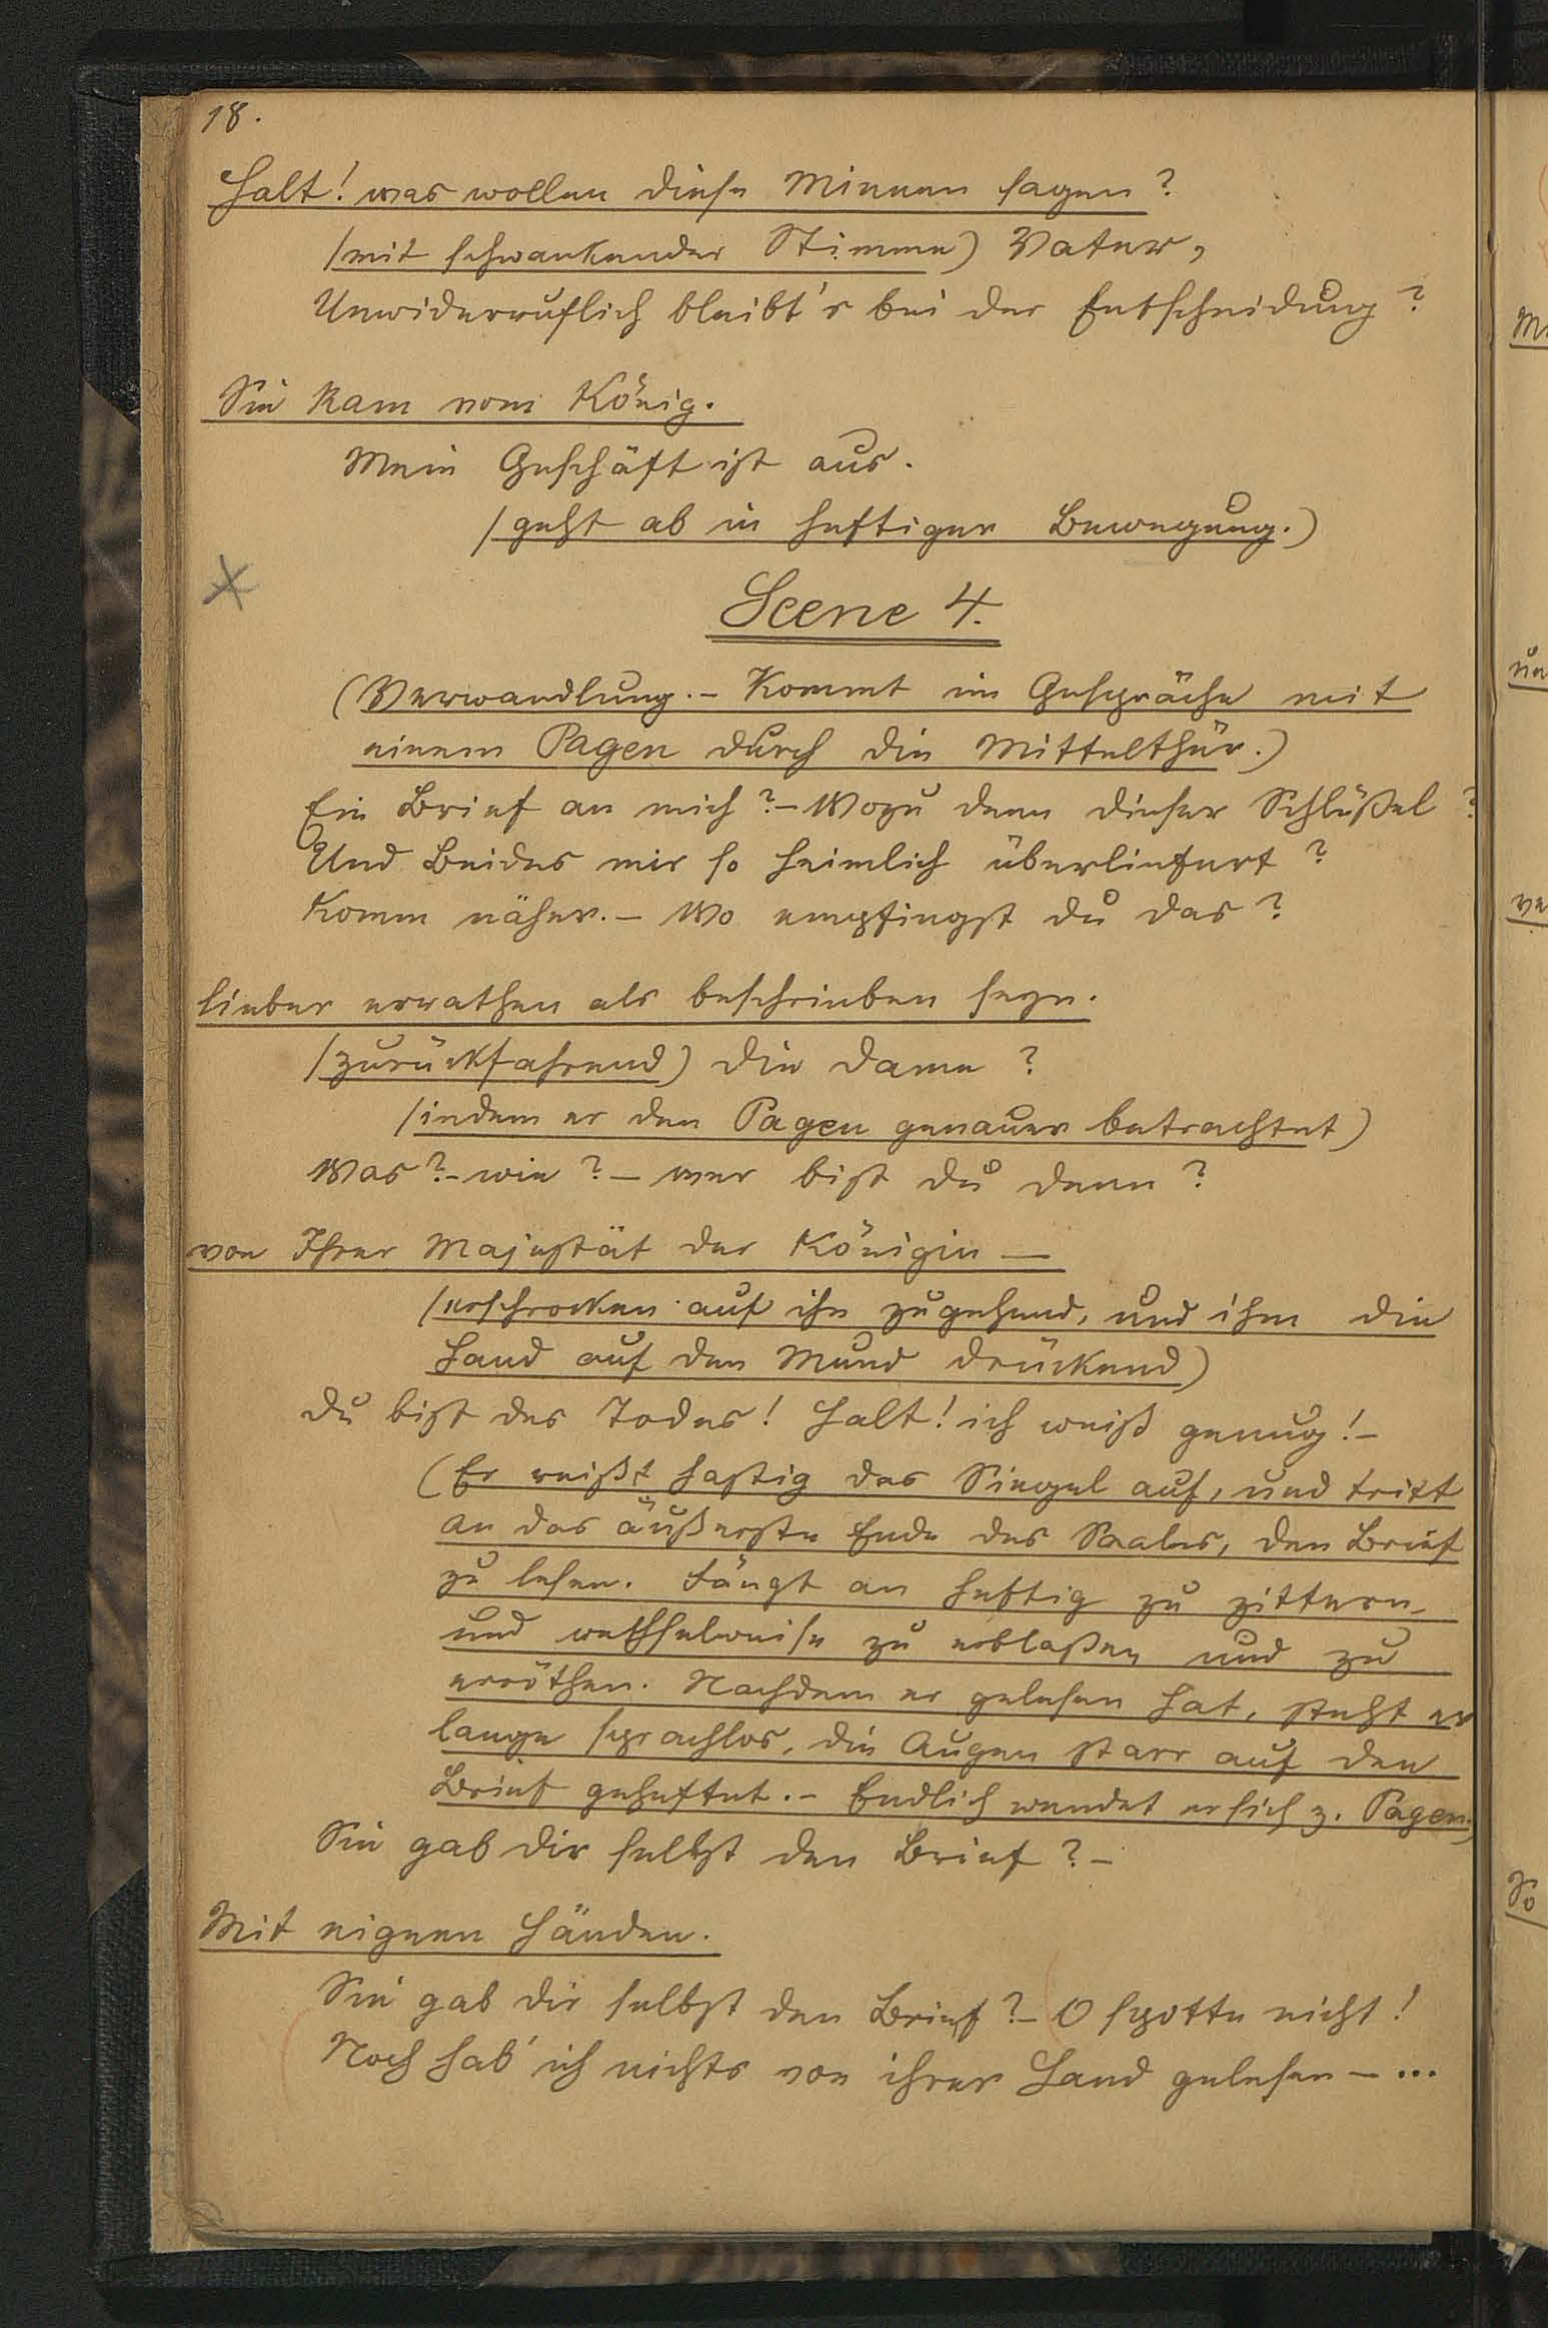 18.
Halt! was wollen diese Mienen sagen?
(mit schwankender Stimme) Vater,
Unwiderruflich bleibt's bei der Entscheidung?
Sie kam vom König.
Mein Geschäft ist aus.
(geht ab in heftiger Bewegung.)
Scene 4.
(Verwandlung. – Kommt im Gespräche mit
einem Pagen durch die Mittelthür.)
Ein Brief an mich? – Wozu denn dieser Schlüßel?
Und Beides mir so heimlich überliefert?
Komm näher. – Wo empfingst du das?
lieber errathen als beschrieben seyn.
(zurückfahrend) Die Dame?
(indem er den Pagen genauer betrachtet)
Was? – wie? – wer bist du denn?
von Ihrer Majestät der Königin –
(erschrocken auf ihn zugehend, und ihm die
Hand auf den Mund drückend)
Du bist des Todes! Halt! ich weiß genug! –
(Er reißt hastig das Siegel auf, und tritt
an das äußerste Ende des Saales, den Brief
zu lesen. Fängt an heftig zu zittern,
und wechselweise zu erblaßen und zu
erröthen. Nachdem er gelesen hat, steht er
lange sprachlos, die Augen starr auf den
Brief geheftet. – Endlich wendet er sich z. Pagen.)
Sie gab dir selbst den Brief? –
Mit eignen Händen.
Sie gab dir selbst den Brief? – O spotte nicht!
Noch hab' ich nichts von ihrer Hand gelesen – ...